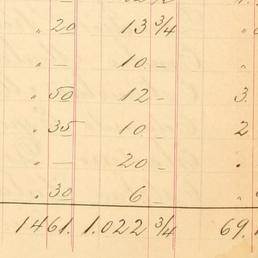 " 20 13 3/4
" — 10 — "
" 50 12 — 3.
" 35 10 — 2
" — 20 — "
" 30 6 — "
1461. 1.022 3/4 69.